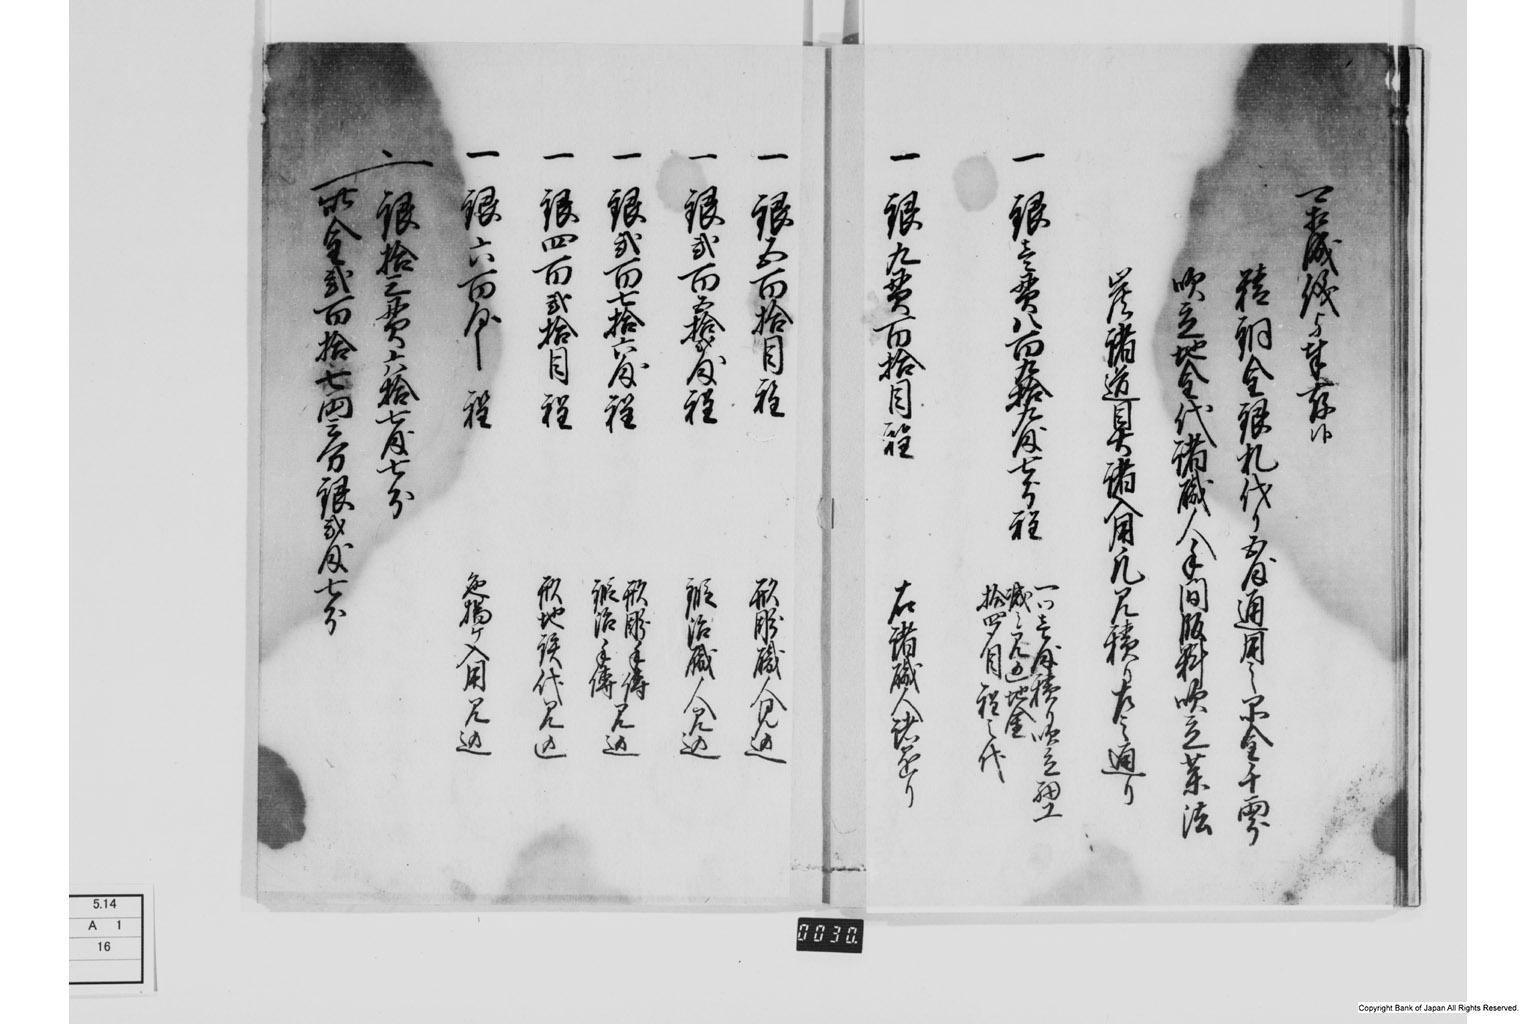 可相成儀与奉存候
精銅金銀札代り五匁通用之判金千両分
吹立地金代諸職人手間飯料吹立薬法
炭諸道具諸入用凡見積り左之通り
一 銀壱貫八百九拾九匁七分程
一つ壱匁積り吹立細工
減之見込地金
拾四〆目程之代
一 銀九貫百拾目程 右諸職人諸
一 銀五百拾目程 形彫職人見込
一 銀弐百五拾弐匁程 鍛治職人見込
一 銀弐百七拾六匁程
形彫手伝
鍛治手伝見込
一 銀四百弐拾目程 形地鉄代見込
一 銀六百匁程 入用見込
〆 銀拾三貫六拾七匁七分
此金弐百拾七両三分銀弐匁七分
0030.
5.14
A 1
16
Copyright Bank of Japan All Rights Reserved.